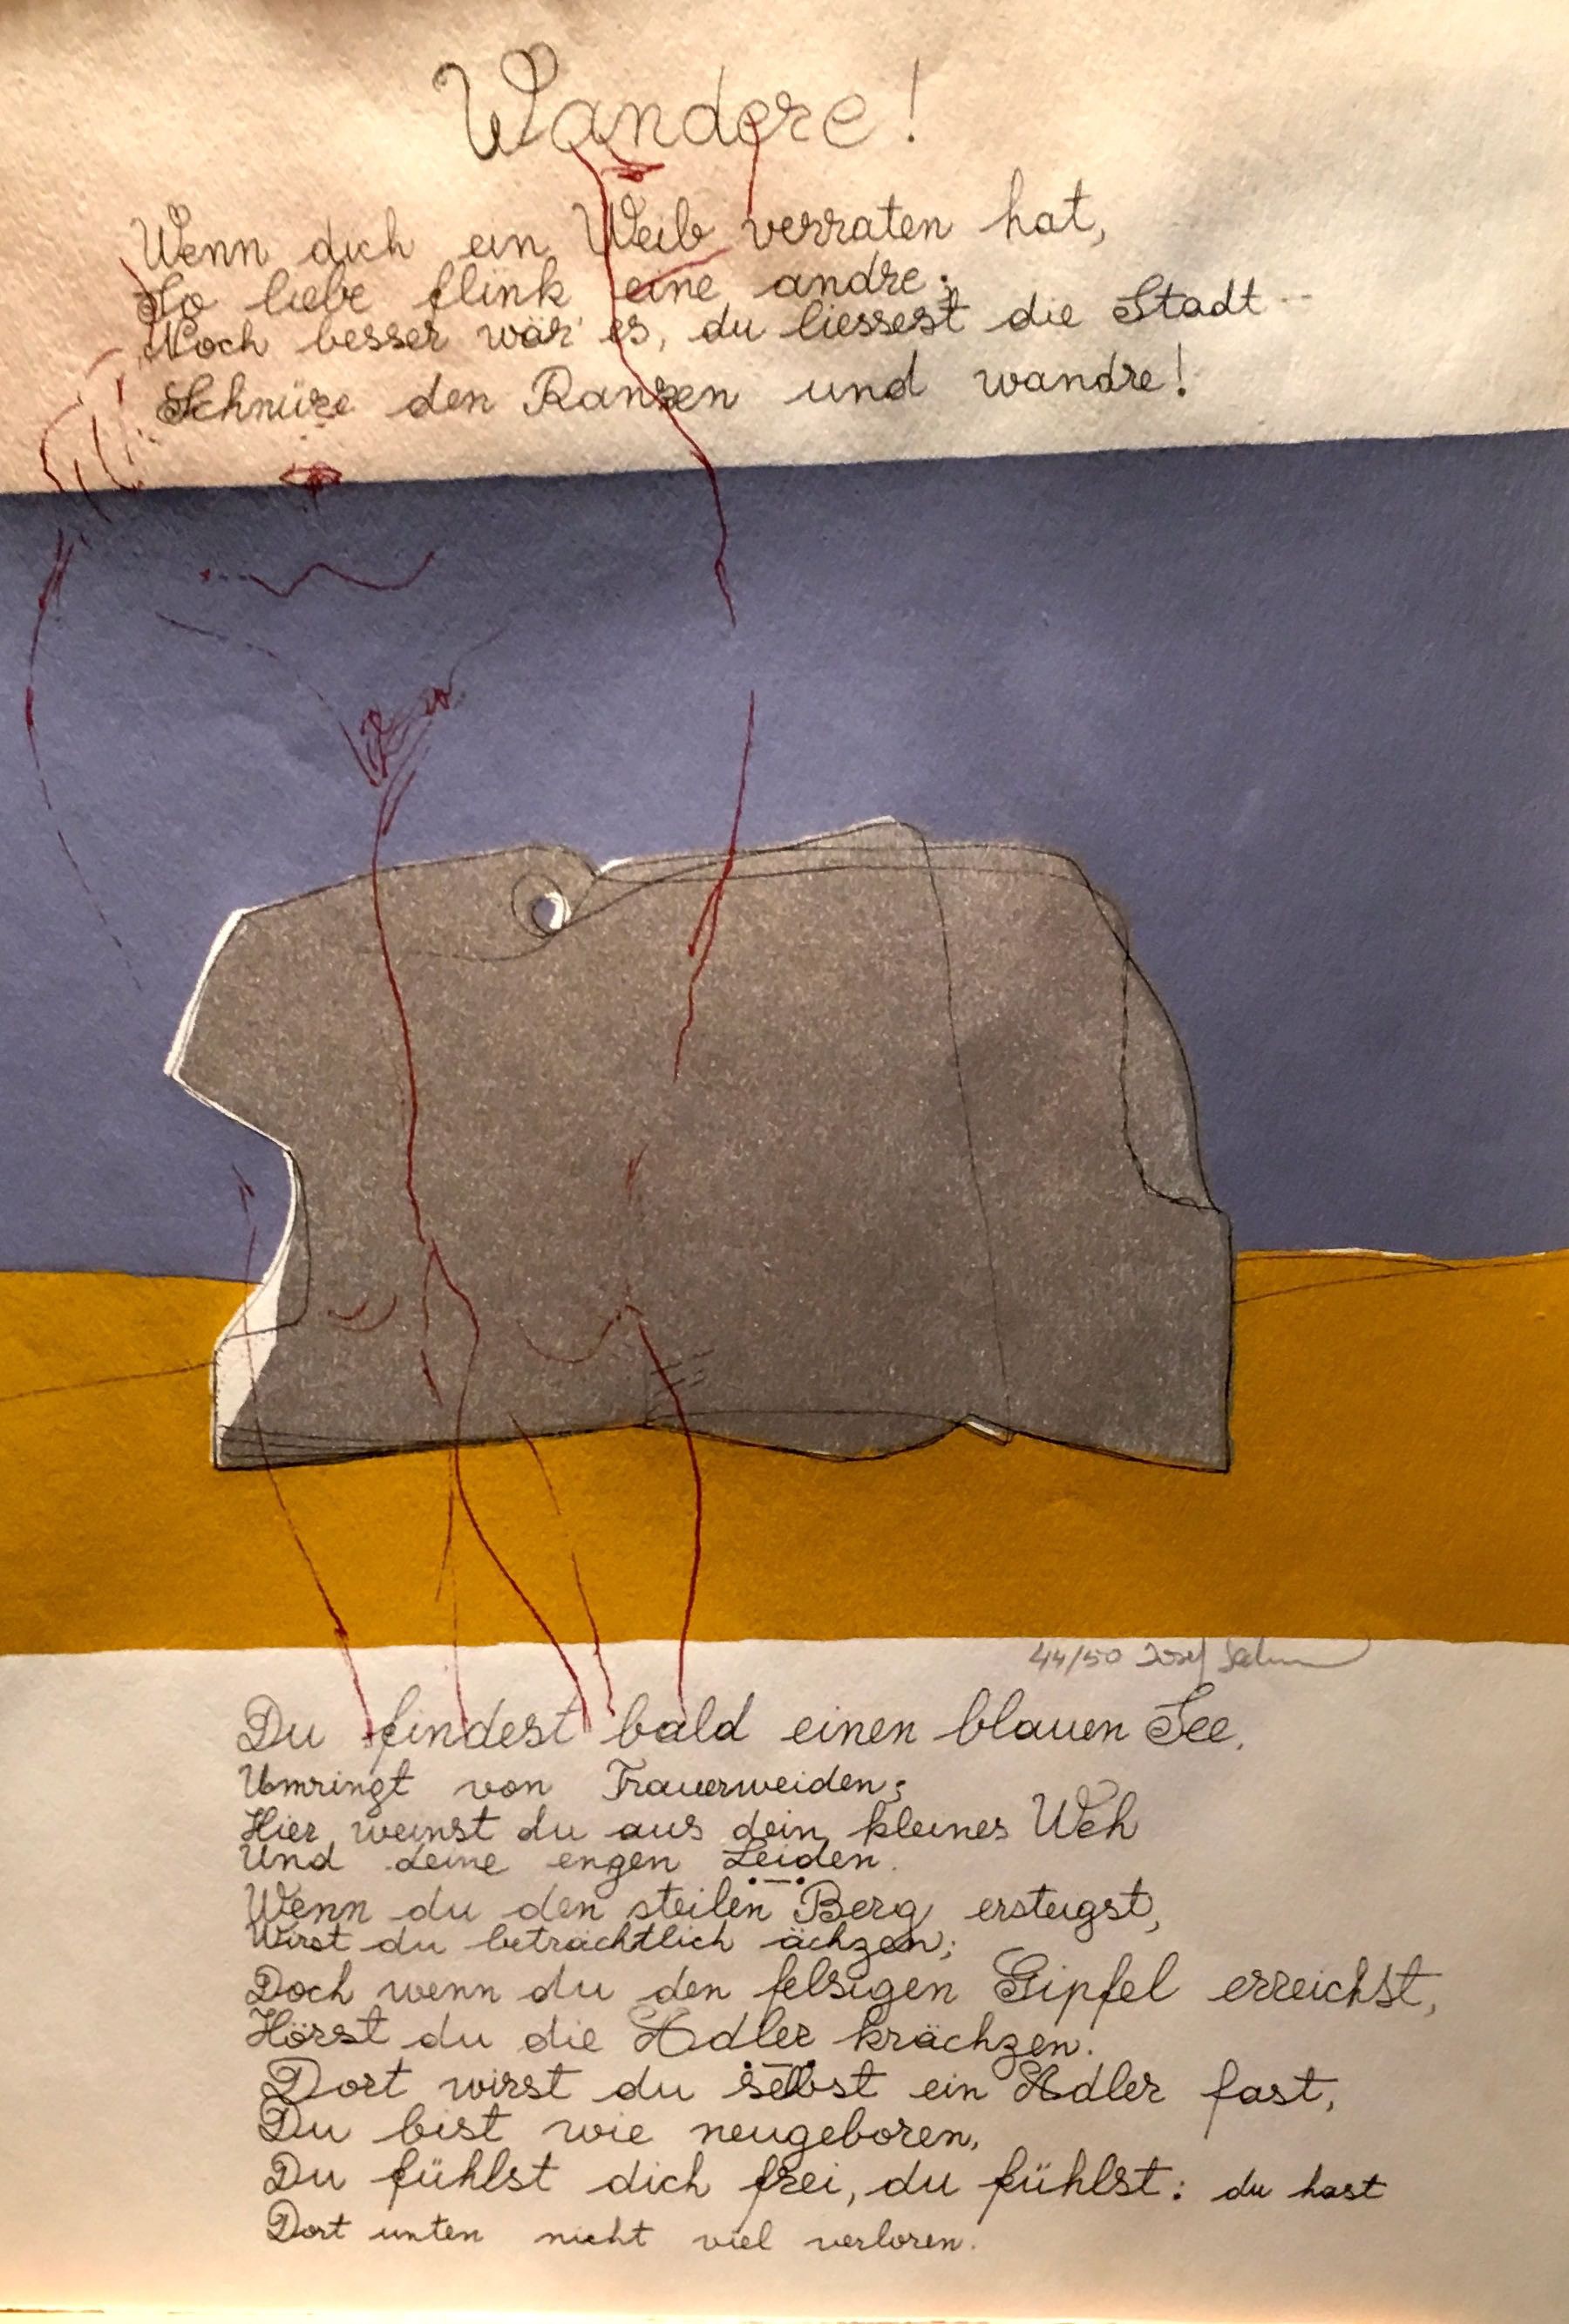 Wandere!
Wenn dich ein Weib verraten hat,
So liebe flink eine andre;
Noch besser wär' es, du liessest die Stadt --
Schnüre den Ranzen und wandre!
44/50 Josef
Du findest bald einen blauen See,
Umringt von Trauerweiden;
Hier weinst du aus dein kleines Weh
Und deine engen Leiden.
Wenn du den steilen Berg ersteigst,
Wirst du beträchtlich ächzen;
Doch wenn du den felsigen Gipfel erreichst,
Hörst du die Adler krächzen.
Dort wirst du selbst ein Adler fast,
Du bist wie neugeboren,
Du fühlst dich frei, du fühlst: du hast
Dort unten nicht viel verloren.